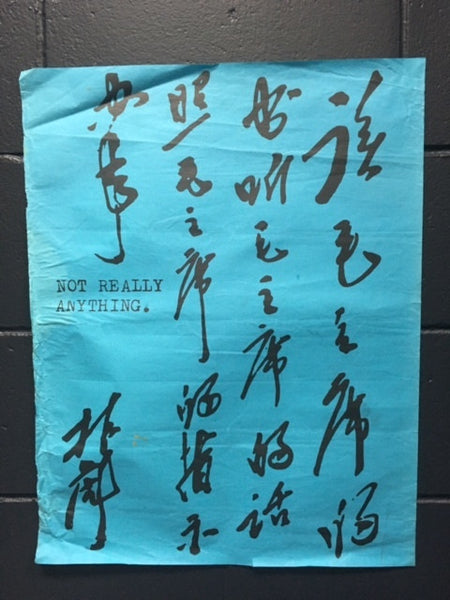 读毛主席的
书听毛主席的话
照毛主席的指示
办事
NOT REALLY
ANYTHING.
林彪